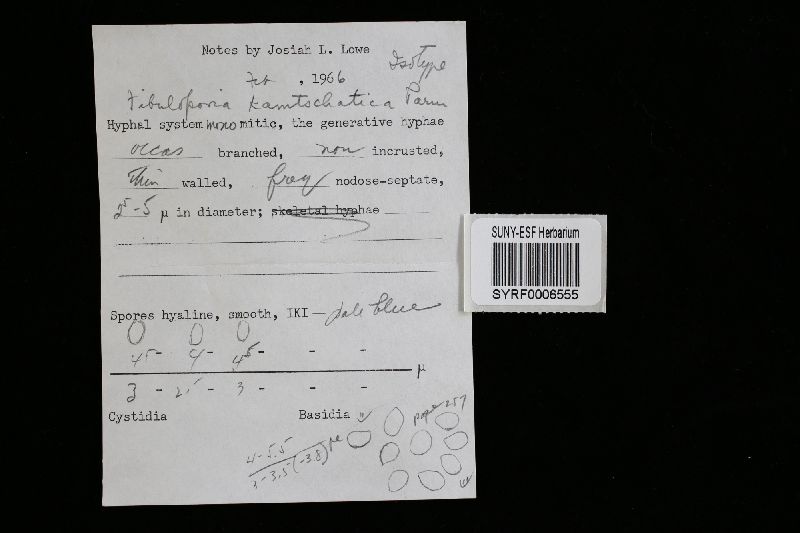 Notes by Josiah L. Lowe
Isotype
Feb , 1966
Fibuloporia kamtschatica Parm
Hyphal system mono mitic, the generative hyphae
occas branched, non incrusted,
thin walled, freq nodose-septate,
2⁵-5 µ in diameter; skeletal hyphae
Spores hyaline, smooth, IKI — pale blue
4⁵- 4- 4⁵- - -
µ
3 - 2⁵ - 3 - - -
Cystidia Basidia
page 257
4-5.5
3-3.5(-3.8)
SUNY-ESF Herbarium
SYRF0006555